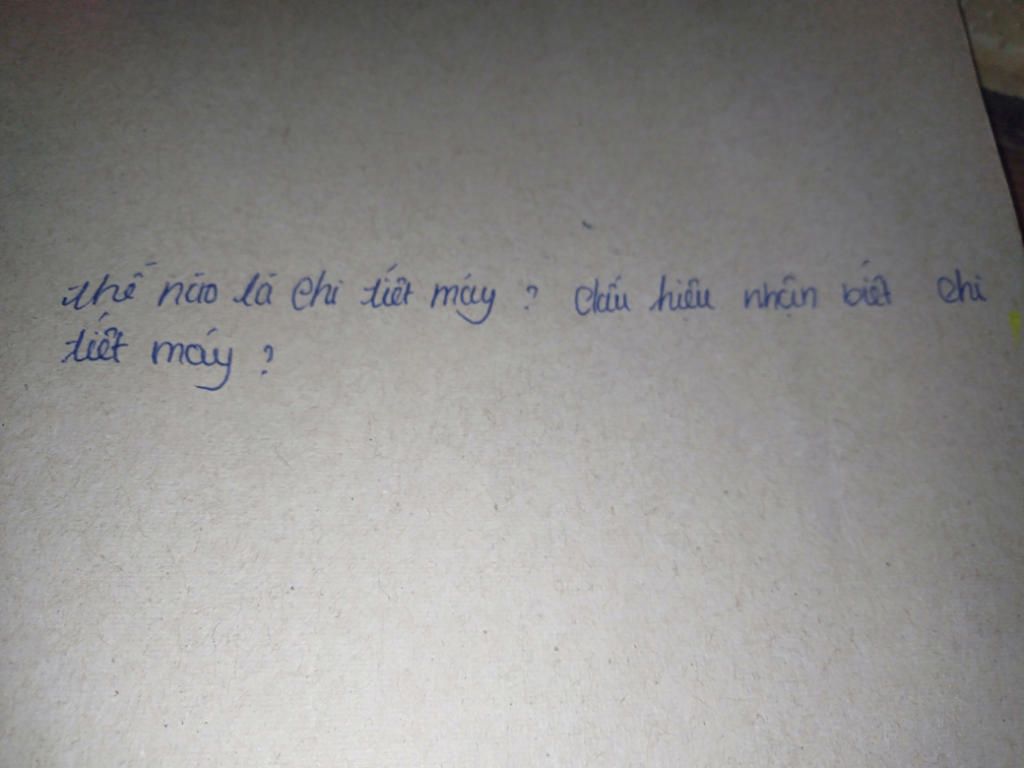 thế nào là chi tiết máy ? dấu hiệu nhận biết chi
tiết máy ?